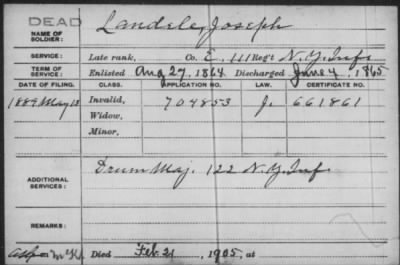 DEAD
NAME OF SOLDIER: Landele, Joseph
SERVICE: Late rank, Co. E, 111 Reg't N.Y. Inf.
TERM OF SERVICE: Enlisted Aug 27, 1864 Discharged June 4, 1865
DATE OF FILING. CLASS. APPLICATION NO. LAW. CERTIFICATE NO.
1889 May 13 Invalid, 704853 J. 661861
Widow,
Minor,
ADDITIONAL SERVICES: Drum Maj. 122 N.Y. Inf.
REMARKS:
Died Feb. 21, 1905, at